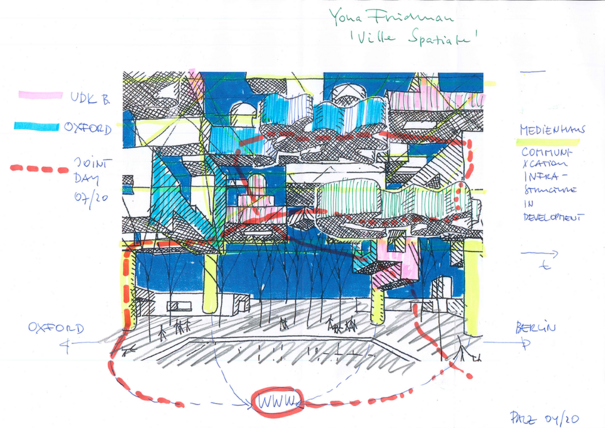 Yona Friedman
'Ville Spatiale'
UDK B
OXFORD
JOINT
DAY
07/20
MEDIENHAUS
COMMUNI-
XCATION
INFRA-
STRUCTURE
IN
DEVELOPMENT
t
OXFORD
BERLIN
WWW
PALZ 04/20